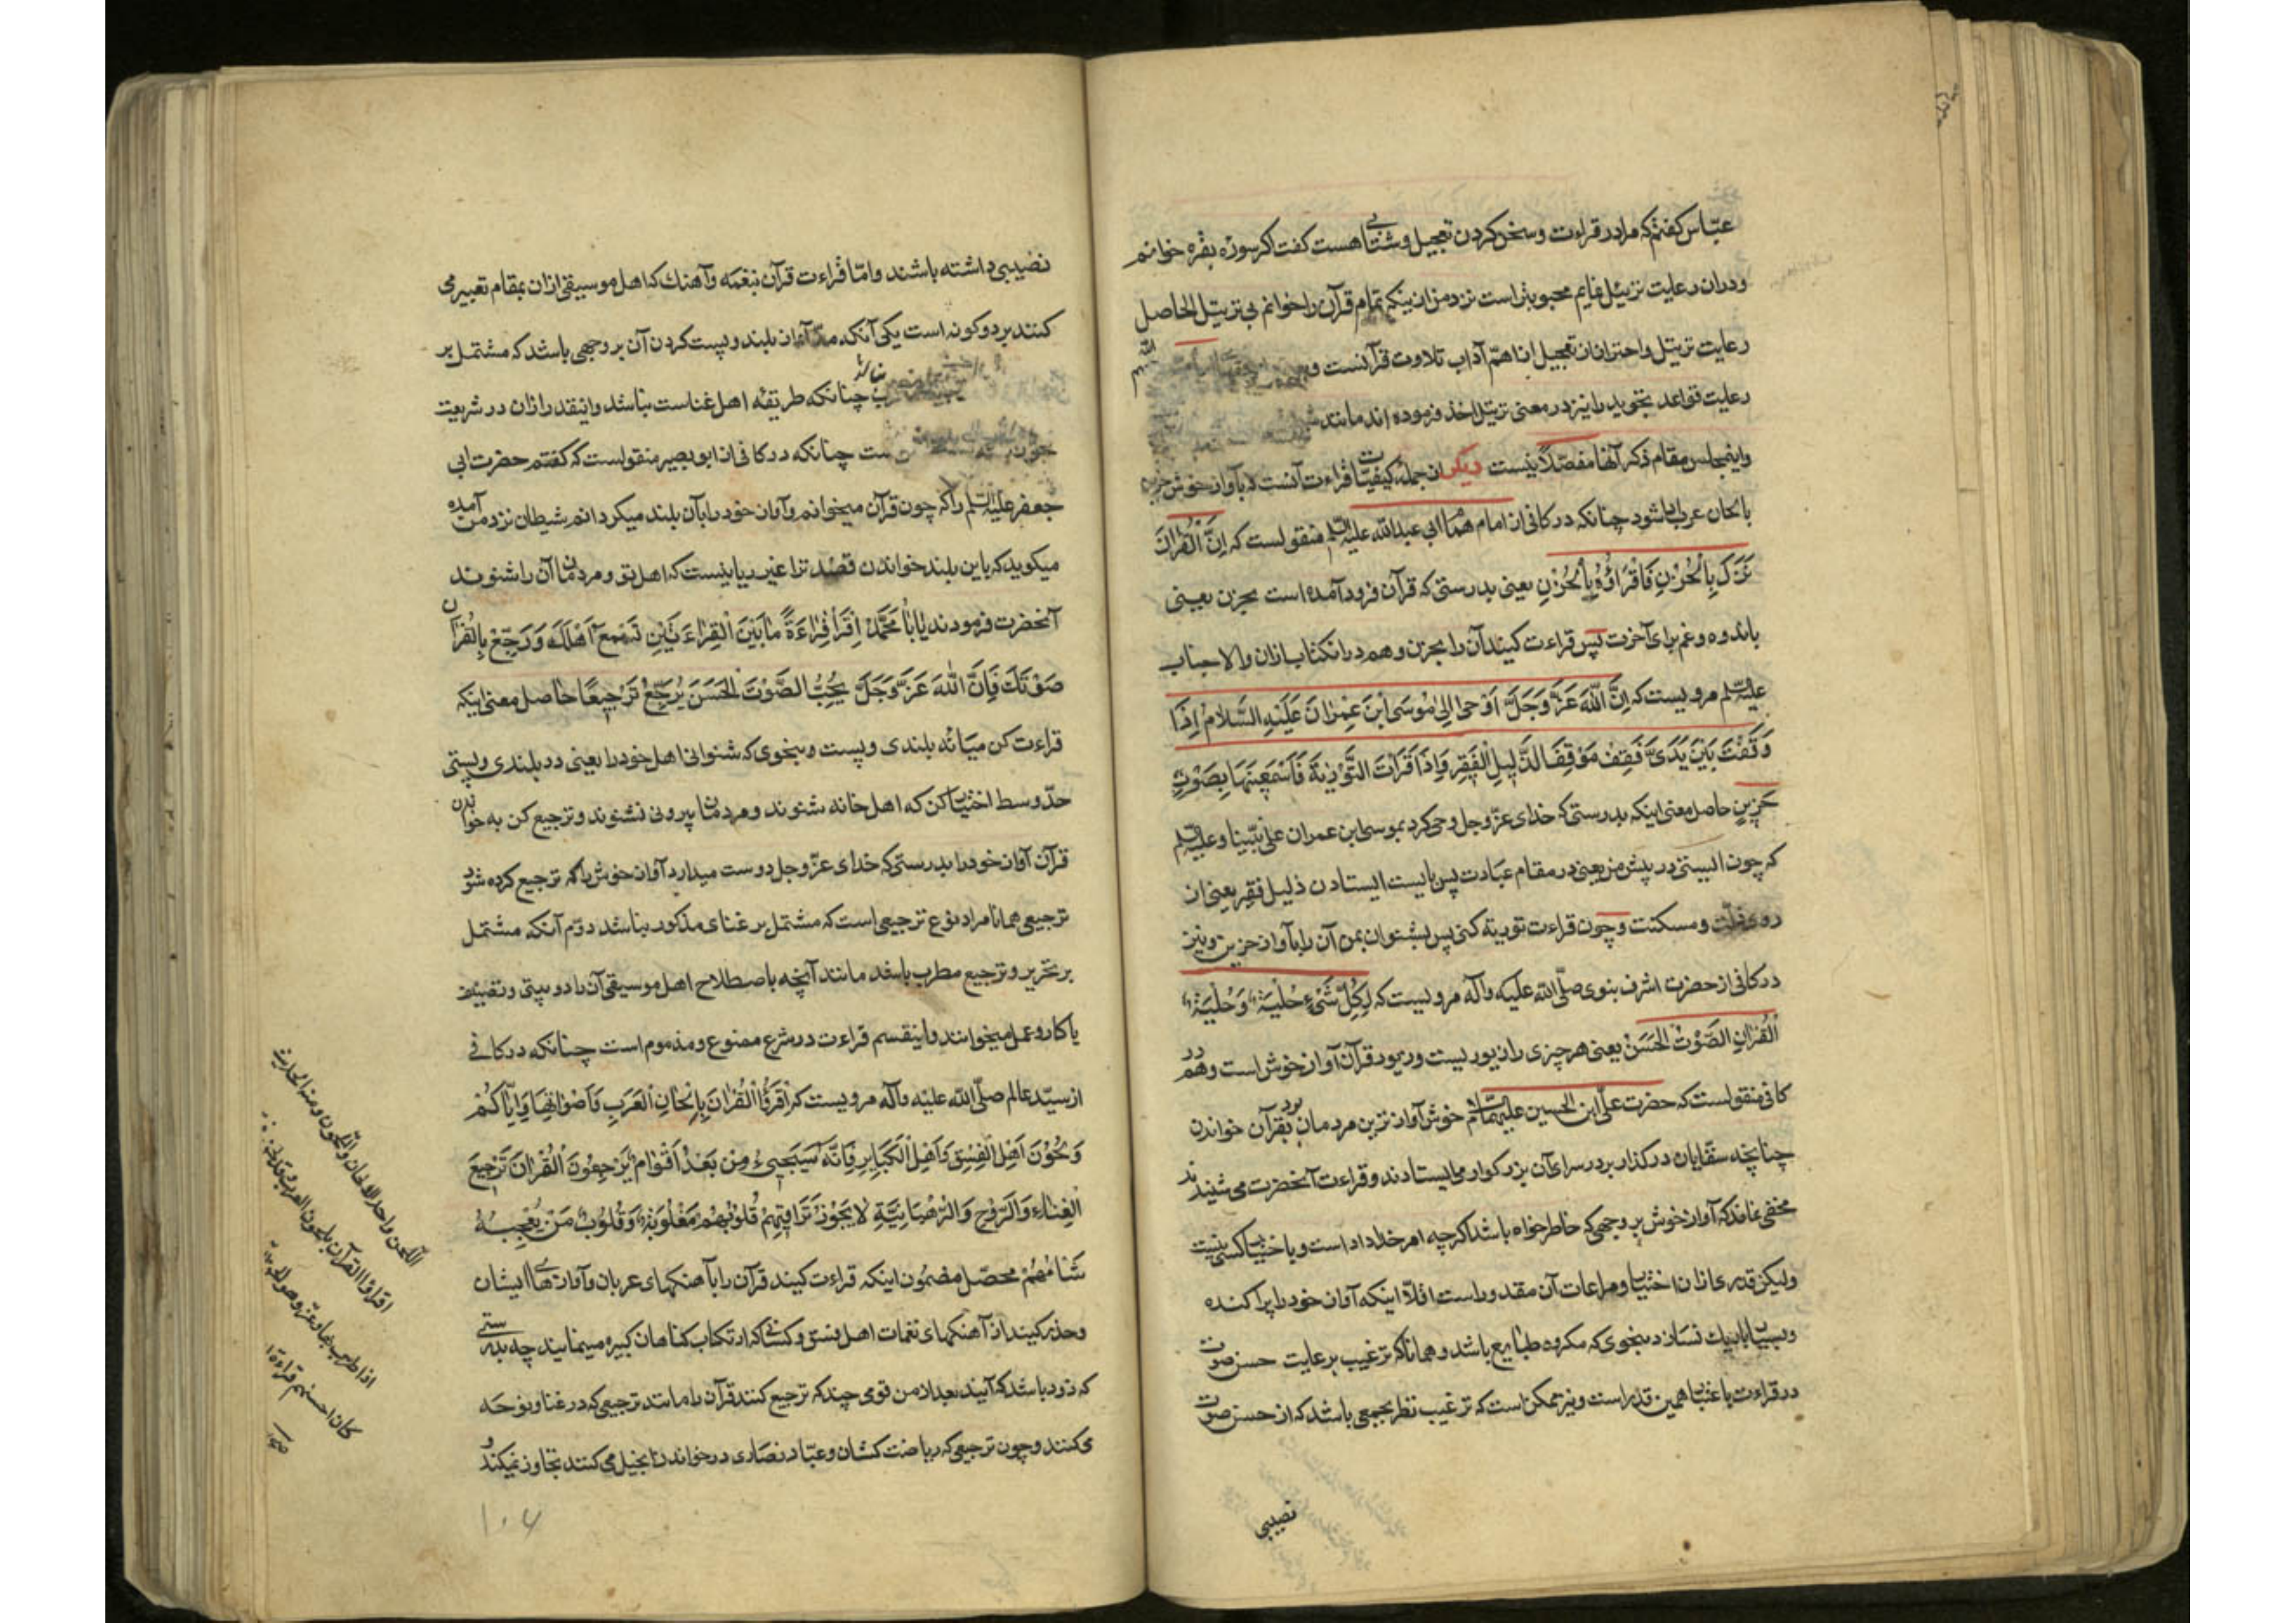 عبّاس گفتم که مرا در قراءت و سخن کردن تعجیل و شتابی هست گفت اگر سوره بقره خوانم
و در ان رعایت ترتیل نمایم محبوبتر است نزد من ازینکه تمام قرآن را خوانم بی ترتیل الحاصل
رعایت ترتیل و احتراز از تعجیل از اهمّ آداب تلاوت قرآنست و
رعایت قواعد تجوید را نیز در معنی ترتیل اخذ فرموده اند مانند
و این مجلس مقام ذکر آنها مفصّلاً نیست دیگر از جمله کیفیّات قراءت آنست که بآواز خوش حزین
بالحان عرب باشد چنانکه در کافی از امام همام ابی عبدالله علیه السلم منقولست که اِنَّ الْقُرْانَ
نَزَلَ بِالْحُزْنِ فَاقْرَاؤُهُ بِالْحُزْنِ یعنی بدرستی که قرآن فرود آمده است بحزن یعنی
باندوه و غم برای آخرت پس قراءت کنید آن را بحزن و هم در انکتاب ازان والاجناب
علیه السلم مرویست که اِنَّ اللّٰهَ عَزَّ وَجَلَّ اَوْحىٰ اِلىٰ مُوسَى ابْنَ عِمْرٰانَ عَلَيْهِ السَّلٰامُ اِذٰا
وَقَفْتَ بَيْنَ يَدَىَّ فَقِفْ مَوْقِفَ الذَّلِيلِ الْفَقِيرِ وَاِذَا قَرَأْتَ التَّوْرٰيةَ فَاَسْمِعْنِيهَا بِصَوْتٍ
حَزِينٍ حاصل معنی اینکه بدرستی که خدای عزّ و جل وحی کرد بموسی ابن عمران علی نبیّنا و علیه السلم
که چون ایستی در پیش من یعنی در مقام عبادت پس بایست ایستادن ذلیل فقیر یعنی از
روی ذلّت و مسکنت و چون قراءت توریة کنی پس بشنوان بمن آن را بآواز حزین و نیز
در کافی از حضرت اشرف نبوی صلّی الله علیه وآله مرویست که لِكُلِّ شَىْءٍ حِلْيَةٌ وَحِلْيَةُ
الْقُرْانِ الصَّوْتُ الْحَسَنُ یعنی هر چیزی را زیوریست و زیور قرآن آواز خوش است و هم در
کافی منقولست که حضرت علیّ ابن الحسین علیهما السلام خوش آواز ترین مردمان بود بقرآن خواندن
چنانچه سقّایان در گذار بر در سرای آن بزرگوار می ایستادند و قراءت آنحضرت می شنیدند
مخفی نماند که آواز خوش بر وجهی که خاطر خواه باشد اگرچه امر خداداد است و باختیار کسی نیست
ولیکن قدری ازان اختیار و مراعات آن مقدور است اقلاّ اینکه آواز خود را پراکنده
نسازد بنحوی که مکروه طبایع باشد و همانا که ترغیب بر رعایت حسن صوت
در قراءت باعتبار همین قدر است و نیز ممکن است که ترغیب نظر بجمعی باشد که از حسن صوت
نصیبی
نصیبی داشته باشند و امّا قراءت قرآن بنغمه و آهنك که اهل موسیقی ازان بمقام تعبیر می
کنند بر دو گونه است یکی آنکه مدّ آواز و بلند و پست کردن آن بر وجهی باشد که مشتمل بر
چنانکه طریقه اهل غناست نباشد و اینقدر ازان در شریعت
ست چنانکه در کافی از ابو بصیر منقولست که گفتم حضرت ابی
جعفر علیه السلم را که چون قرآن میخوانم و آواز خود را بآن بلند میگردانم شیطان نزد من آمده
میگوید که باین بلند خواندن قصد ترا غیر ریا نیست که اهل تو و مردمان آن را شنوند
آنحضرت فرمودند یٰا بٰا مُحَمَّدْ اِقْرَأْ قِرٰاءَةً مٰا بَيْنَ الْقِرٰاءَتَيْنِ تُسْمِعُ اَهْلَكَ وَرَجِّعْ بِالْقُرْآنِ
صَوْتَكَ فَاِنَّ اللّٰهَ عَزَّ وَجَلَّ يُحِبُّ الصَّوْتَ الْحَسَنَ يُرَجَّعُ تَرْجِيعًا حاصل معنی اینکه
قراءت کن میانه بلندی و پست و بنحوی که شنوانی اهل خود را یعنی در بلندی و پستی
حدّ وسط اختیار کن که اهل خانه شنوند و مردمان بیرونی نشنوند و ترجیع کن به خواندن
قرآن آواز خود را بدرستی که خدای عزّ و جل دوست میدارد آواز خوش را که ترجیع کرده شود
ترجیعی همانا مراد نوع ترجیعی است که مشتمل بر غنای مذکور نباشد دوّم آنکه مشتمل
بر تحریر و ترجیع مطرب باشد مانند آنچه باصطلاح اهل موسیقی آن را دو بیتی و تصنیف
یا کار و عمل میخوانند و اینقسم قراءت در شرع ممنوع و مذموم است چنانکه در کافی
از سیّد عالم صلّی الله علیه وآله مرویست که اقْرَؤُا الْقُرْانَ بِاَلْحٰانِ الْعَرَبِ وَاَصْوٰاتِهَا وَاِيّٰاكُمْ
وَلُحُوْنَ اَهْلِ الْفِسْقِ وَاَهْلِ الْكَبَايِرِ فَاِنَّهُ سَيَجِىءُ مِنْ بَعْدُ اَقْوٰامٌ يُرَجِّعُونَ الْقُرْانَ تَرْجِيعَ
الْغِنٰاءِ وَالنَّوْحِ وَالرَّهْبٰانِيَّةِ لٰا يَجُوْزُ تَرَاقِيَهِمْ قُلُوْبُهُمْ مَقْلُوبَةٌ وَقُلُوبُ مَنْ يُعْجِبُهُ
شَأْنُهُمْ محصّل مضمون اینکه قراءت کنید قرآن را بآهنگهای عربان و آوازهای ایشان
و حذر کنید از آهنگهای نغمات اهل فسق و کسانی که ارتکاب گناهان کبیره مینمایند چه بدرستی
که زود باشد که آیند بعد از من قومی چند که ترجیع کنند قرآن را مانند ترجیعی که در غنا و نوحه
می کنند و چون ترجیعی که ریاضت کشان و عبّاد نصاری در خواندن انجیل می کنند تجاوز نمیکند
۱۰۶
اللّحن واحد الالحان واللحون ومنه الحدیث
اقراؤا القرآن بلحون العرب
اذا طرب بها وغرّد وهو الحن
کان احسنهم قراءة